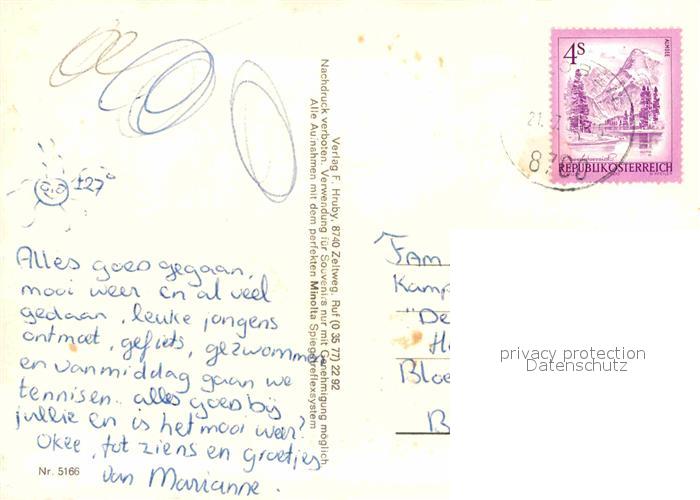 ±27°
Alles goed gegaan,
mooi weer en al veel
gedaan, leuke jongens
ontmoet, gefietst, gezwommen
en vanmiddag gaan we
tennissen. alles goed bij
jullie en is het mooi weer?
Okee, tot ziens en groetjes
van Marianne.
Nr. 5166
Verlag F. Hruby, 8740 Zeltweg, Ruf (0 35 77) 22 92
Nachdruck verboten, Verwendung für Souvenirs nur mit Genehmigung möglich
Alle Aufnahmen mit dem perfekten Minolta Spiegelreflexsystem
4S
ALMSEE
REPUBLIK ÖSTERREICH
21.
Fam
Kamp
"De
Bloe
B
privacy protection
Datenschutz